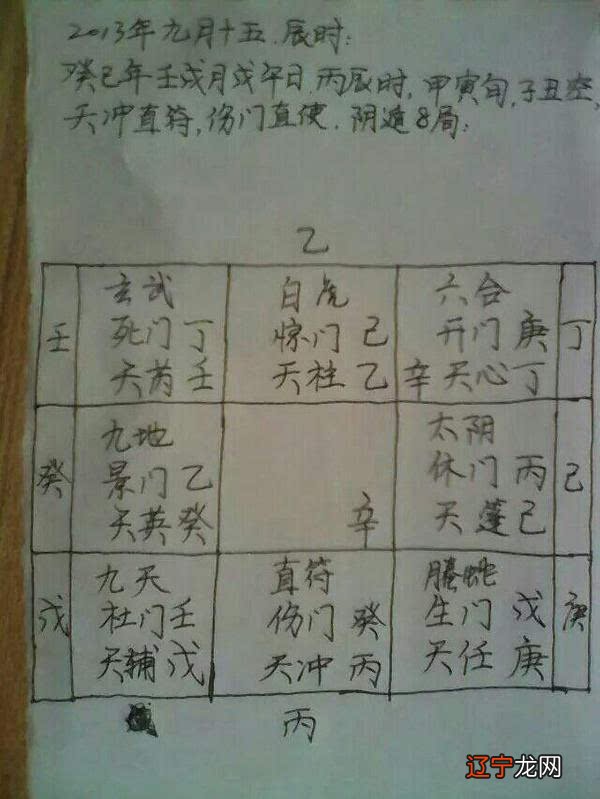 2013年九月十五.辰时:
癸巳年壬戌月戊午日.丙辰时,甲寅旬,子丑空,
天冲直符,伤门直使.阴遁8局:
乙
玄武 白虎 六合
壬 死门 丁 惊门 己 开门 庚 丁
天芮 壬 天柱 乙 辛 天心 丁
九地 太阴
癸 景门 乙 休门 丙 己
天英 癸 辛 天蓬 己
九天 直符 螣蛇
戊 杜门 壬 伤门 癸 生门 戊 庚
天辅 戊 天冲 丙 天任 庚
丙
辽宁龙网